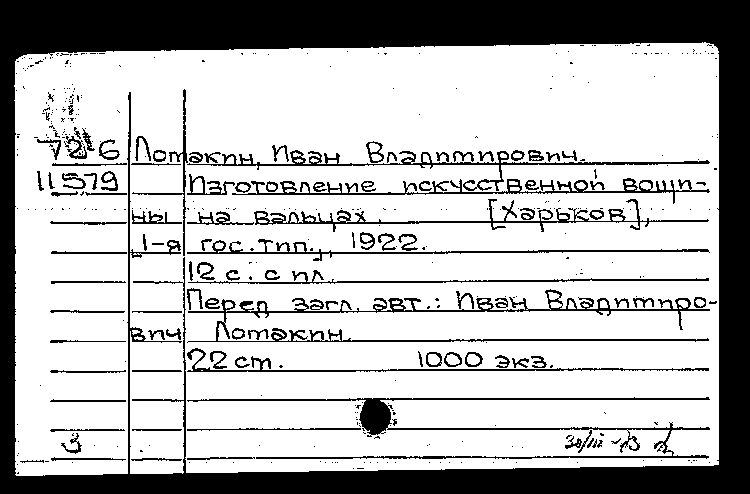 726 Лотакин, Иван Владимирович.
11579 Изготовление искусственной вощи-
ны на вальцах. [Харьков],
1-я гос. тип., 1922.
12 с. с ил.
Перед загл. авт.: Иван Владимиро-
вич Лотакин.
22 ст. 1000 экз.
3